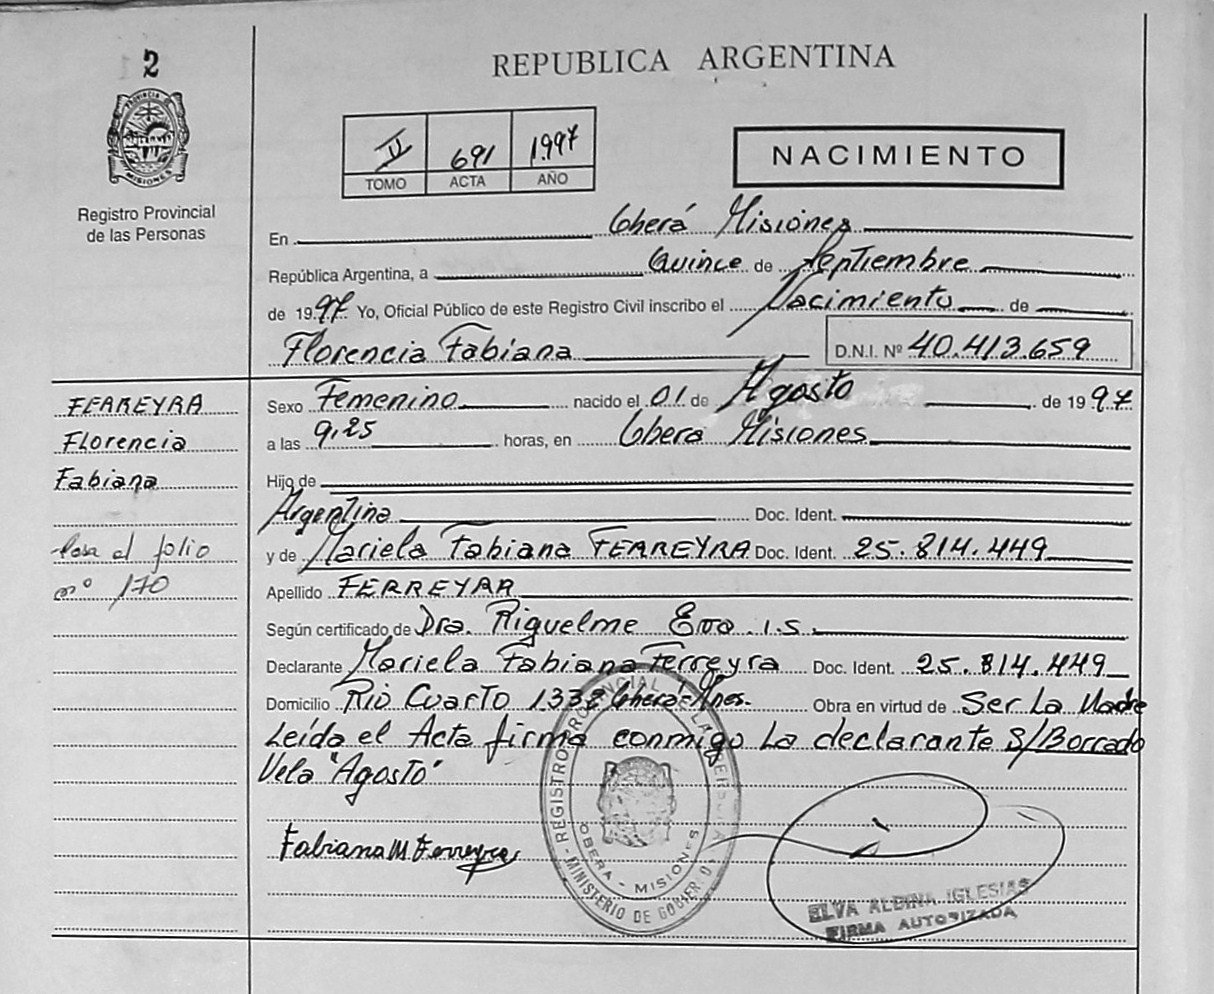 2
REPUBLICA ARGENTINA
II 691 1997
TOMO ACTA AÑO
NACIMIENTO
PROVINCIA DE MISIONES
Registro Provincial
de las Personas
En Oberá Misiones
República Argentina, a Quince de Septiembre
de 1997 Yo, Oficial Público de este Registro Civil inscribo el Nacimiento de
Florencia Fabiana D.N.I. Nº 40.413.659
FERREYRA
Florencia
Fabiana
Pasa al folio
nº 170
Sexo Femenino nacido el 01 de Agosto de 1997
a las 9,25 horas, en Oberá Misiones
Hijo de
Argentina Doc. Ident.
y de Mariela Fabiana FERREYRA Doc. Ident. 25.814.449
Apellido FERREYRA
Según certificado de Dra. Riquelme Eva .I.S.
Declarante Mariela Fabiana Ferreyra Doc. Ident. 25.814.449
Domicilio Rio Cuarto 1338 Oberá Mnes. Obra en virtud de Ser La Madre
Leída el Acta firma conmigo La declarante S/Borrado
Vale "Agosto"
Fabiana M Ferreyra
REGISTRO PROVINCIAL DE LAS PERSONAS
MINISTERIO DE GOBIERNO
OBERA - MISIONES
ELVA ALBINA IGLESIAS
FIRMA AUTORIZADA